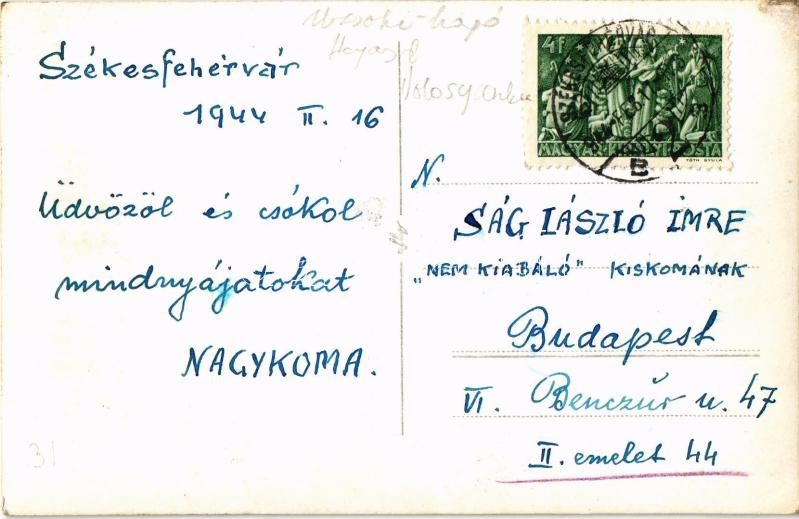 Székesfehérvár
1944 II. 16
Üdvözöl és csókol
mindnyájatokat
NAGYKOMA.
31
Uzsoki-hágó
4f
MAGYAR KIR. POSTA
TÓTH GYULA
N.
SÁG LÁSZLÓ IMRE
„NEM KIABÁLÓ" KISKOMÁNAK
Budapest
VI. Benczúr u. 47
II. emelet 44